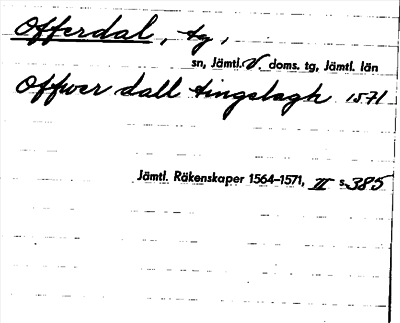 Offerdal, tg,
sn, Jämtl. V. doms. tg, Jämtl. län
Offwer dall tingslagh 1571
Jämtl. Räkenskaper 1564–1571, II s. 385